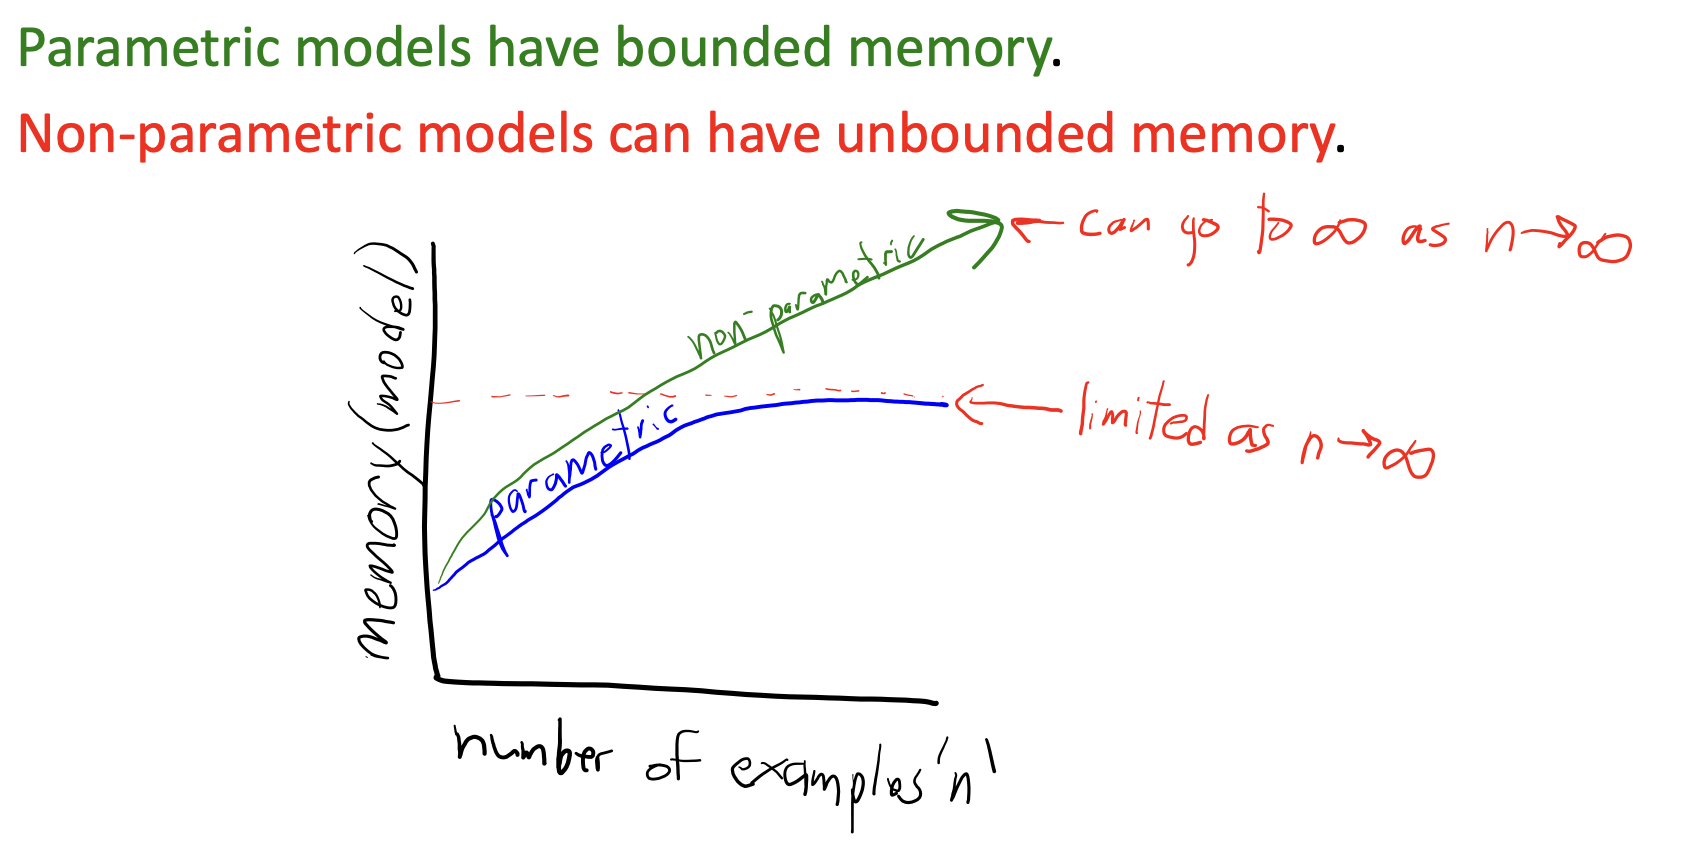 Parametric models have bounded memory.
Non-parametric models can have unbounded memory.
can go to ∞ as n→∞
non-parametric
memory(model)
parametric
limited as n→∞
number of examples 'n'